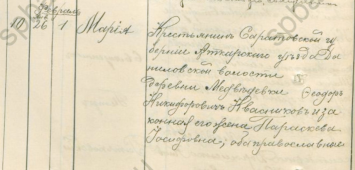 Февраль
10 26 1 Марія
Крестьянинъ Саратовской гу
берніи Аткарскаго уѣзда Да
ниловской волости
деревни Медвѣдевки Ѳеодоръ
Никифоровичъ Квасниковъ и за
конная его жена Параскева
Іосифовна; оба православные